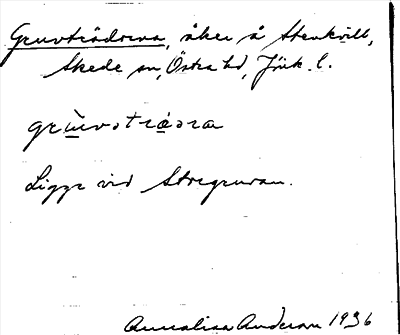 Gruvträdorna, åker å Stenkvill,
Skede sn, Östra hd, Jönk. l.
grùvətrǽəra
Ligge vid Storgruvan.
Annalisa Anderson 1936